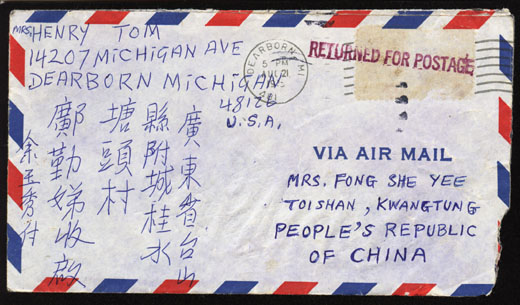 MRS. HENRY TOM
14207 MICHIGAN AVE
DEARBORN MICHIGAN
48126
U.S.A.
DEARBORN, MI
5 PM
21
RETURNED FOR POSTAGE
VIA AIR MAIL
MRS. FONG SHE YEE
TOISHAN, KWANGTUNG
PEOPLE'S REPUBLIC
OF CHINA
廣東省台山
縣附城桂水
塘頭村
鄺勤娣收啟
余玉秀付